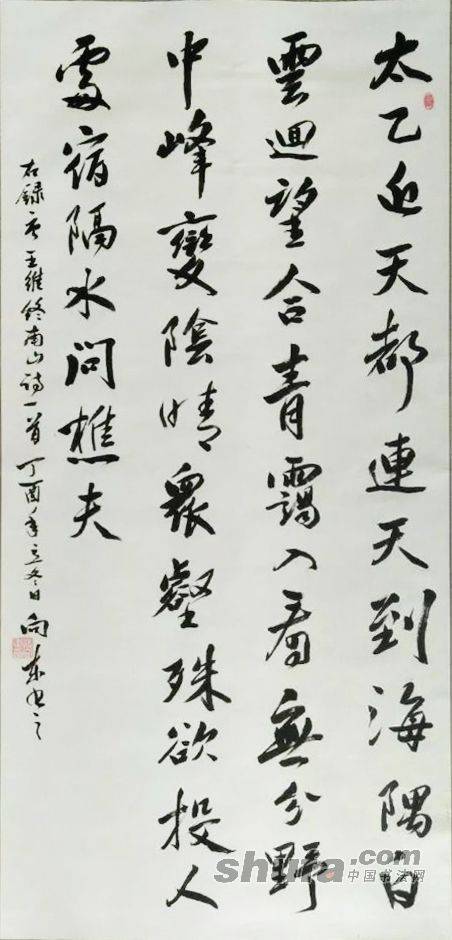 太乙近天都連天到海隅白
雲迴望合青靄入看無分野
中峰變陰晴衆壑殊欲投人
處宿隔水問樵夫
右録唐王維終南山詩一首丁酉年立冬日向东书之
shufa.com
中国书法网